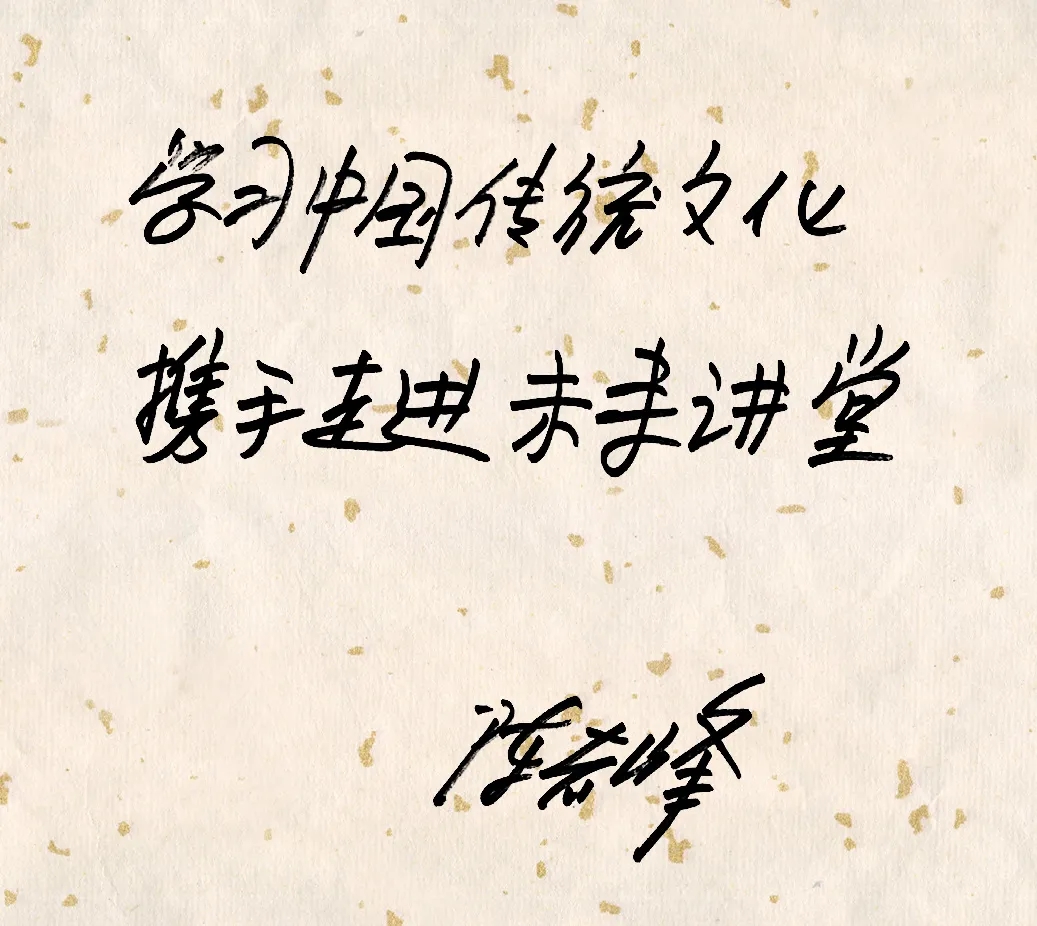 学习中国传统文化
携手走进未来讲堂